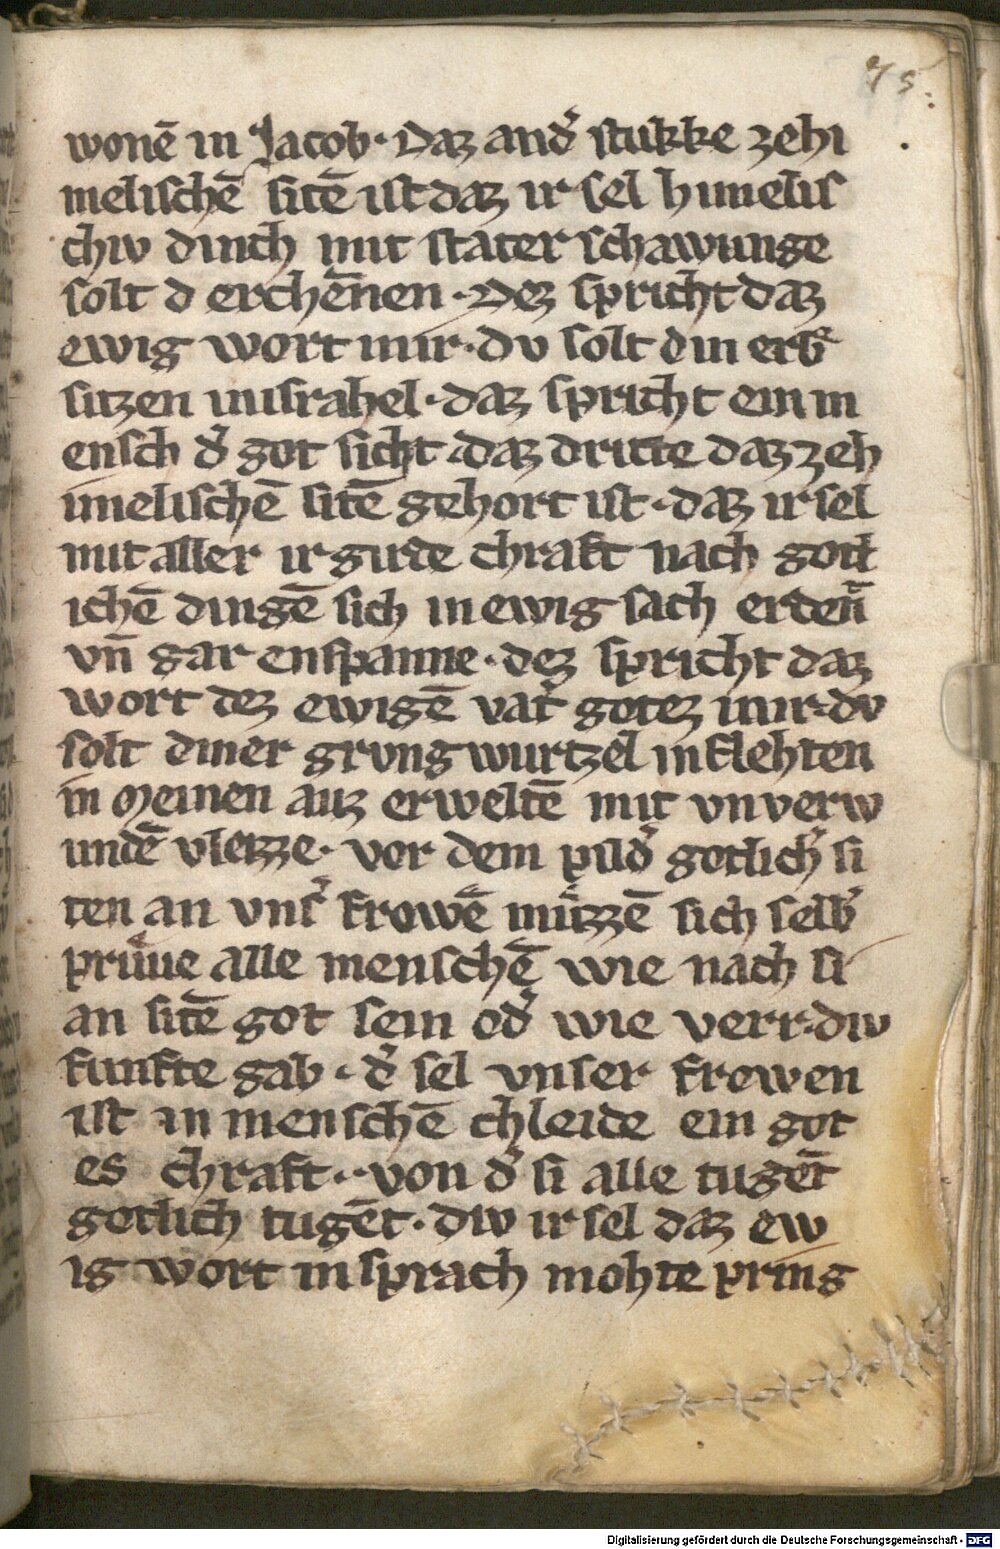 75.
wonē in Jacob · Daz and̛ stukke zehi
melischē sitē ist daz ir sel himelis
chiv dinch mit stater schawunge
solt d erchēnen · Dez spricht daz
ewig wort mir · dv solt din erb̛
sitzen inisrahel · daz spricht ein m
ensch d̛ got sicht · daz dritte daz zeh
imelischē sitē gehort ist · daz ir sel
mit aller ir girde chraft nach gotl
ichē dingē sich in ewig sach erden̄
vn̄ gar enspanne · dez spricht daz
wort dez ewigē vat̛ gotez mir · dv
solt diner grvng wurtzel in flehten
in meinen auz erweltē mit vnverw
undē vleizze · vor dem pild̛ gotlich̛ si
ten an vns̛ frowē mützzē sich selb̛
prüue alle menschē wie nach si
an sitē got sein od̛ wie verr · div
funfte gab · d̛ sel vnser frowen
ist in menschē chleide ein got
es chraft · von d̛ si alle tugēt
gotlich tugēt · div ir sel daz ew
ig wort in sprach mohte pring
Digitalisierung gefördert durch die Deutsche Forschungsgemeinschaft - DFG